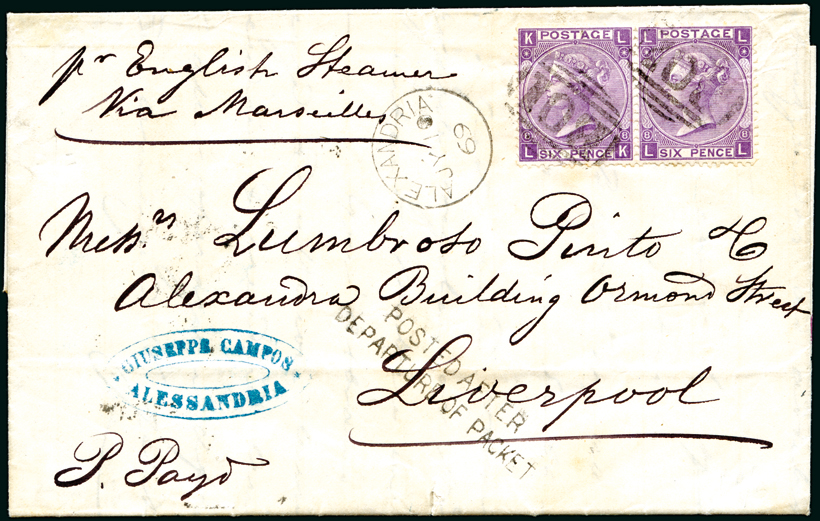 pr English Steamer
Via Marseilles
ALEXANDRIA
JY 19
69
K POSTAGE L
L SIX PENCE K
L POSTAGE L
L SIX PENCE L
8 8
8 8
Messrs. Lumbroso Pinto & C
Alexandra Building Ormond Street
Liverpool
POSTED AFTER
DEPARTURE OF PACKET
GIUSEPPE CAMPOS
ALESSANDRIA
P. Payd